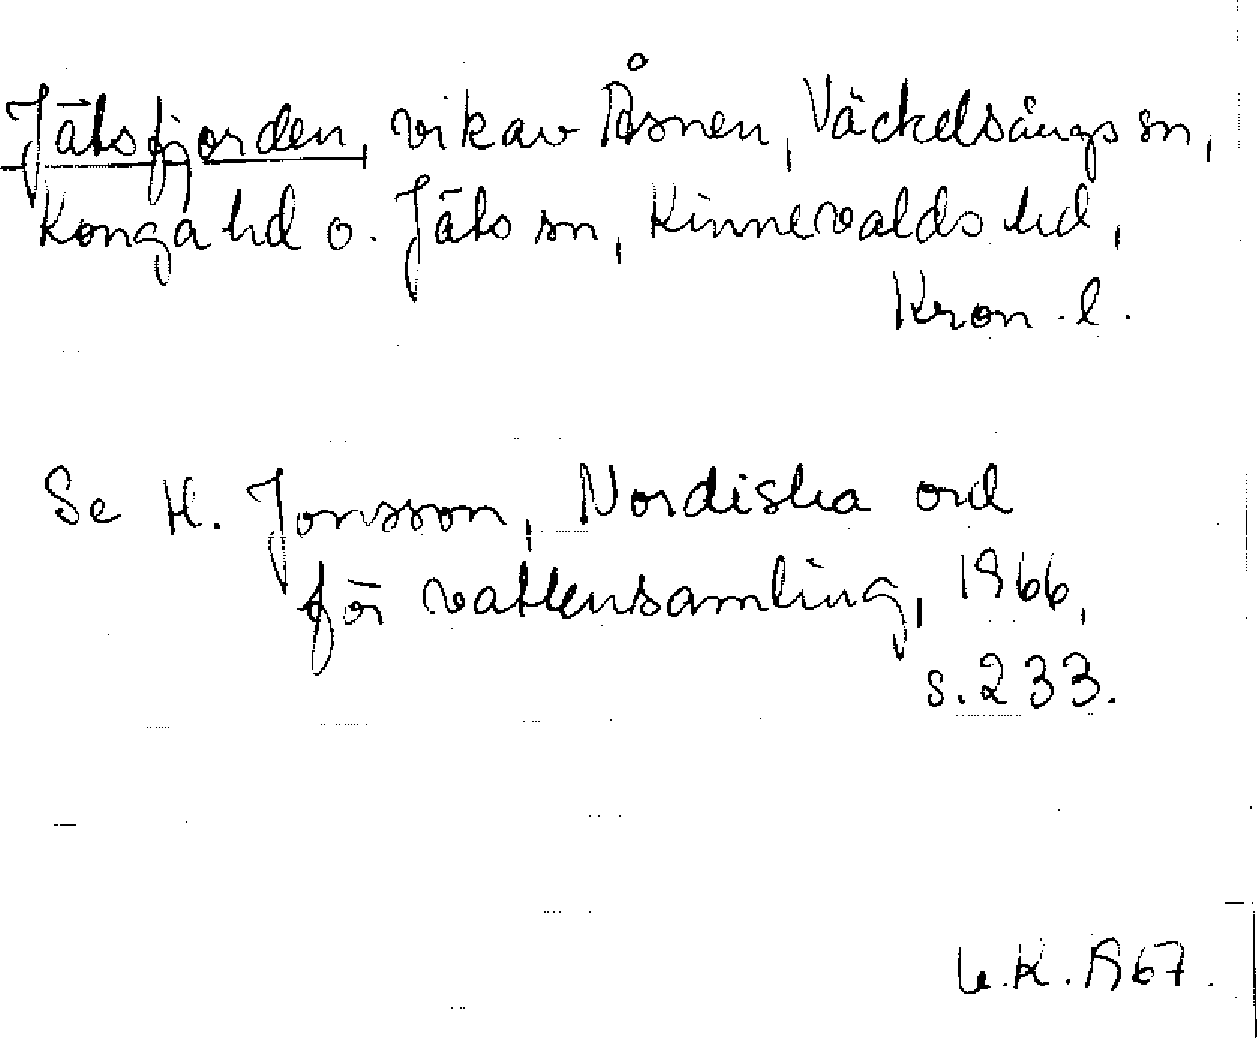 Jätsfjorden, vik av Åsnen, Väckelsångs sn,
Konga hd o. Jäts sn, Kinnevalds hd,
Kron. l.
Se H. Jonsson, Nordiska ord
för vattensamling, 1966,
s. 233.
K. 1967.